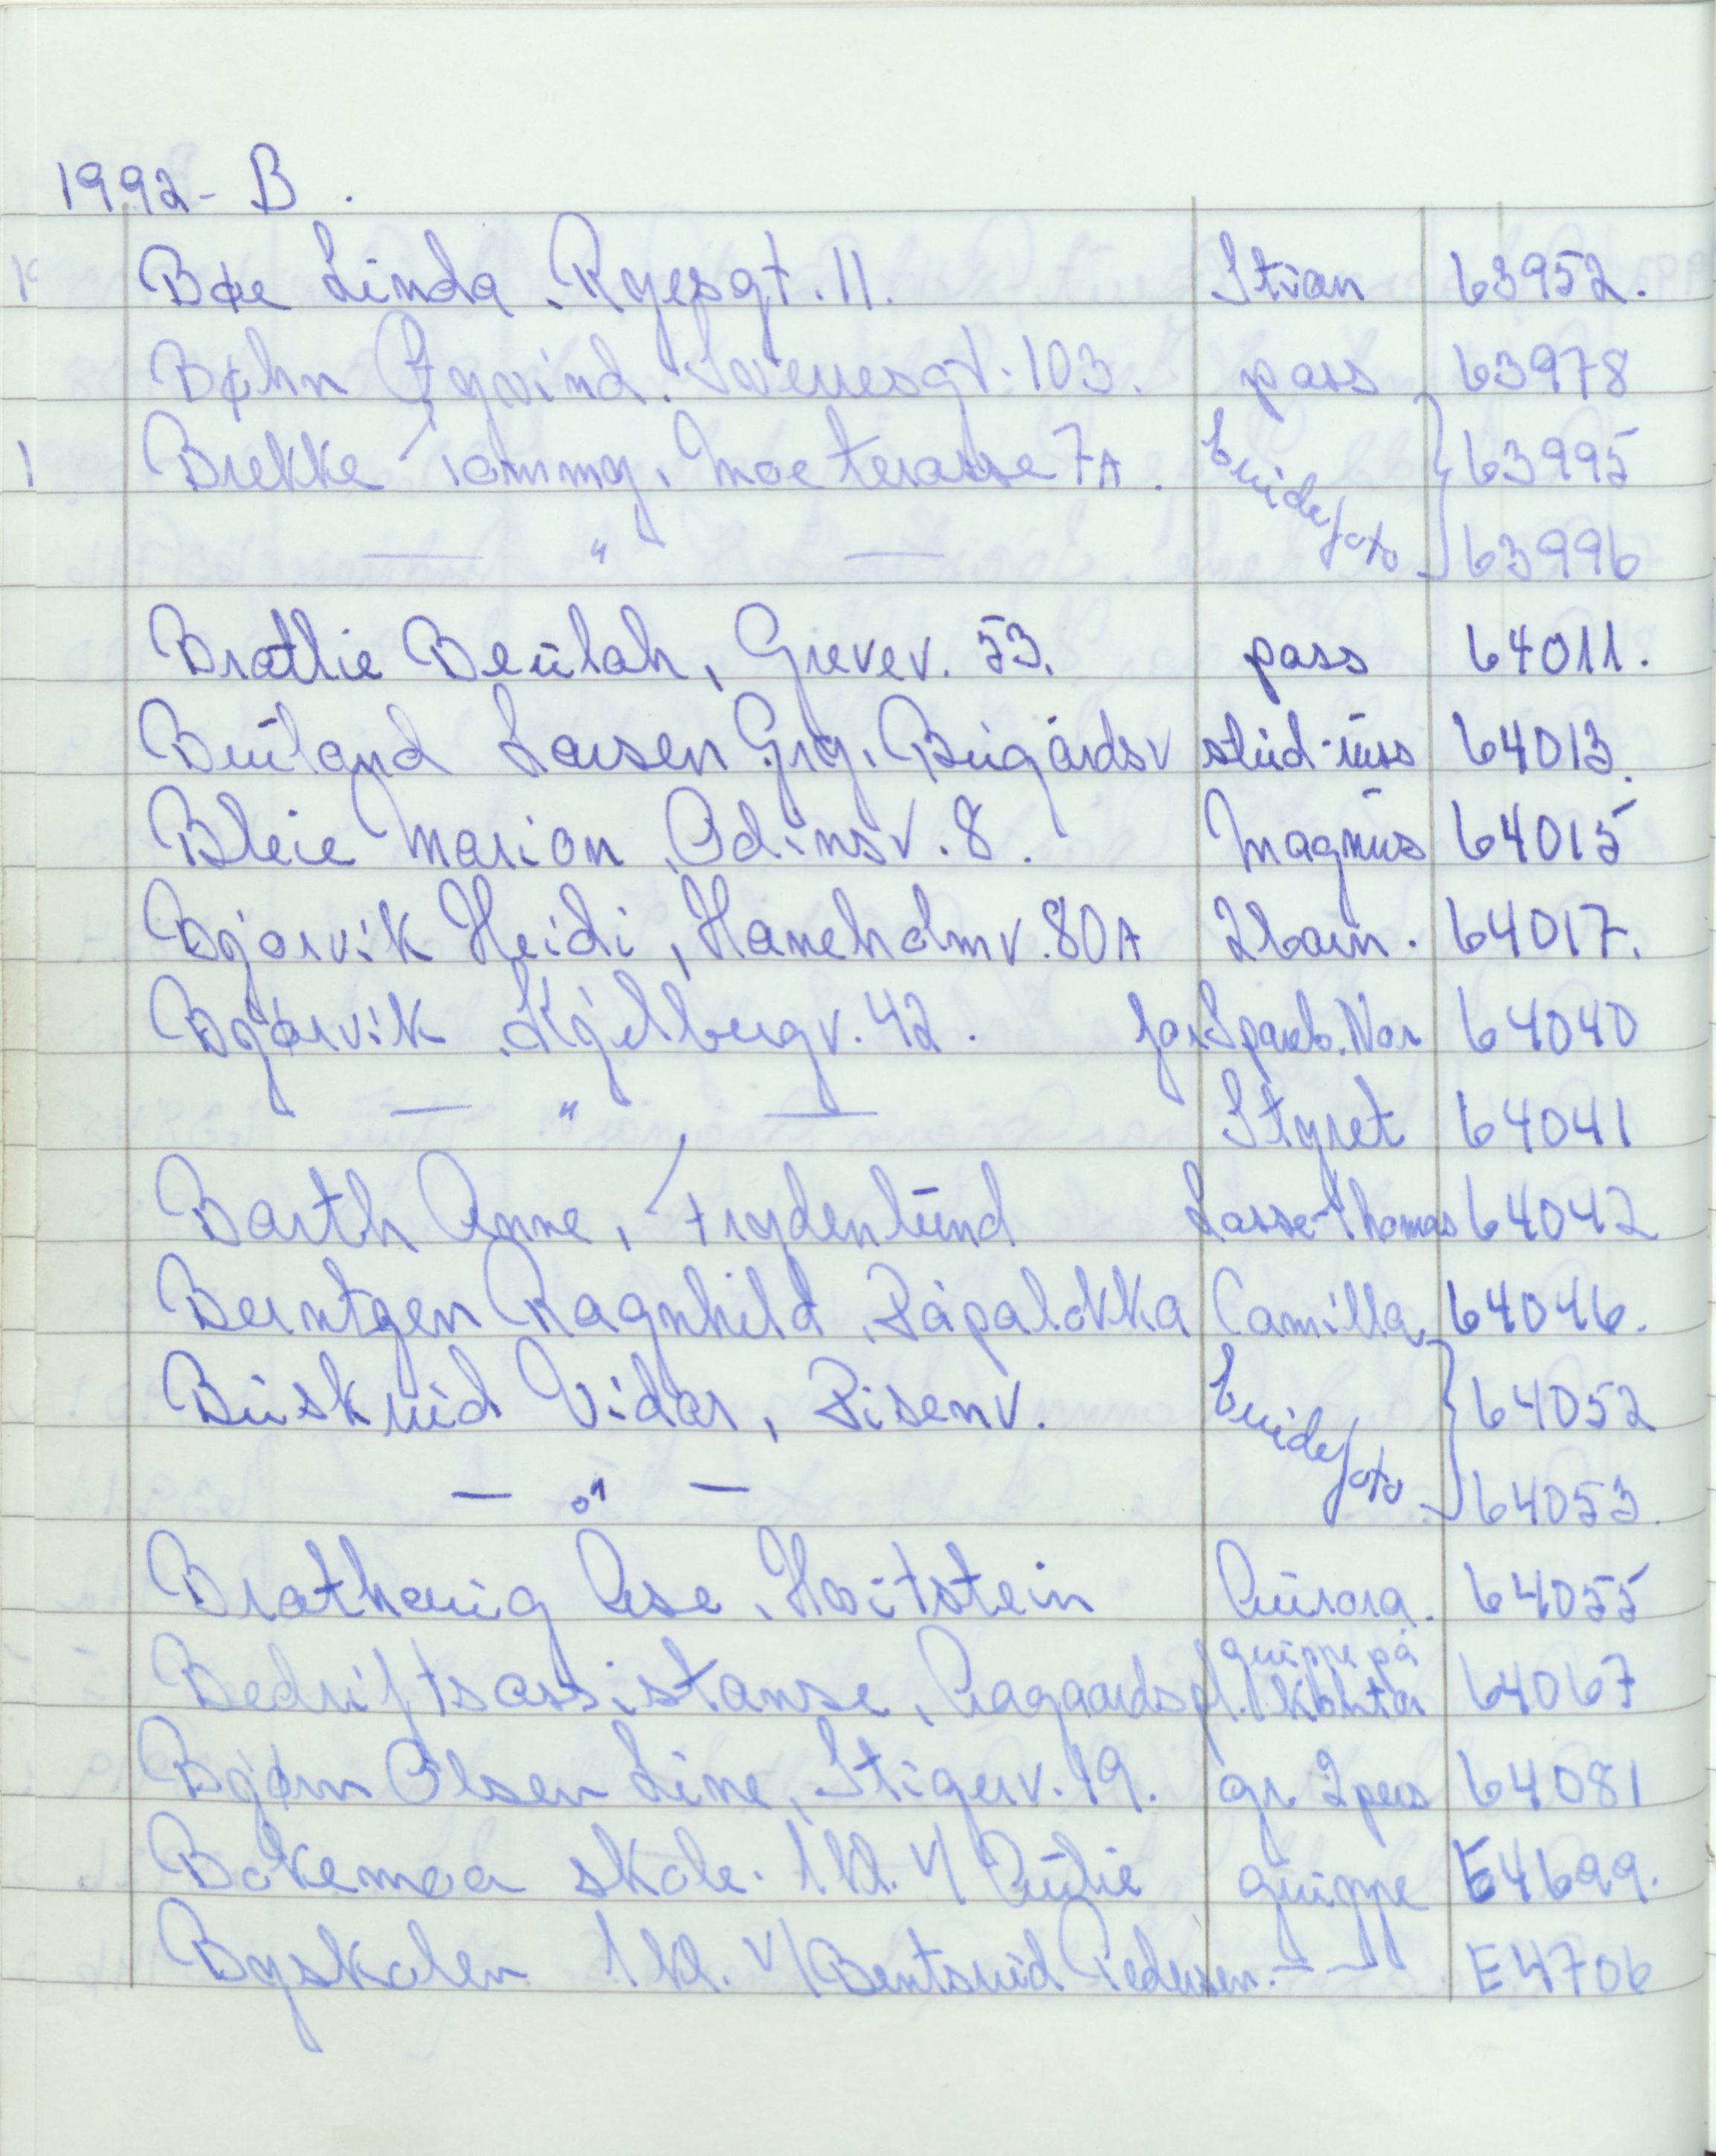 1992 - B.
Bøe Linda. Ryesgt. 11. Stian 63952.
Bøhn Øyvind. Sverresgt. 103. pass 63978
Brekke Tommy, Moe terasse 7A. brudefoto 63995
— " — 63996
Brathie Beulah, Grevev. 53. pass 64011.
Builand Larsen Gry. Brigårdsv stud-uss 64013.
Bleie Marion, Odinsv. 8. Magnus 64015
Bjørvik Heidi, Haneholmv. 80A 2 barn. 64017.
Bjørvik, Kjelbergv. 42. for Spareb. Nor 64040
— " — Styret 64041
Barth Anne, Frydenlund Lasse-Thomas 64042
Berntzen Ragnhild, Råpalokka Camilla 64046.
Buskrud Vidar, Risenv. brudefoto 64052
— " — 64053.
Bråthaug Åse. Hvitstein Aurora. 64055
Bedriftsassistanse, Aagaardspl. 1 gruppe på kontor 64067
Bjørn Olsen Line, Stigerv. 19. gr. 2 pers 64081
Bakemoa skole. 1 kl. v/ Julie gruppe E4699.
Byskolen 1 kl. v/ Bentsrud Pedersen. — " — E4706